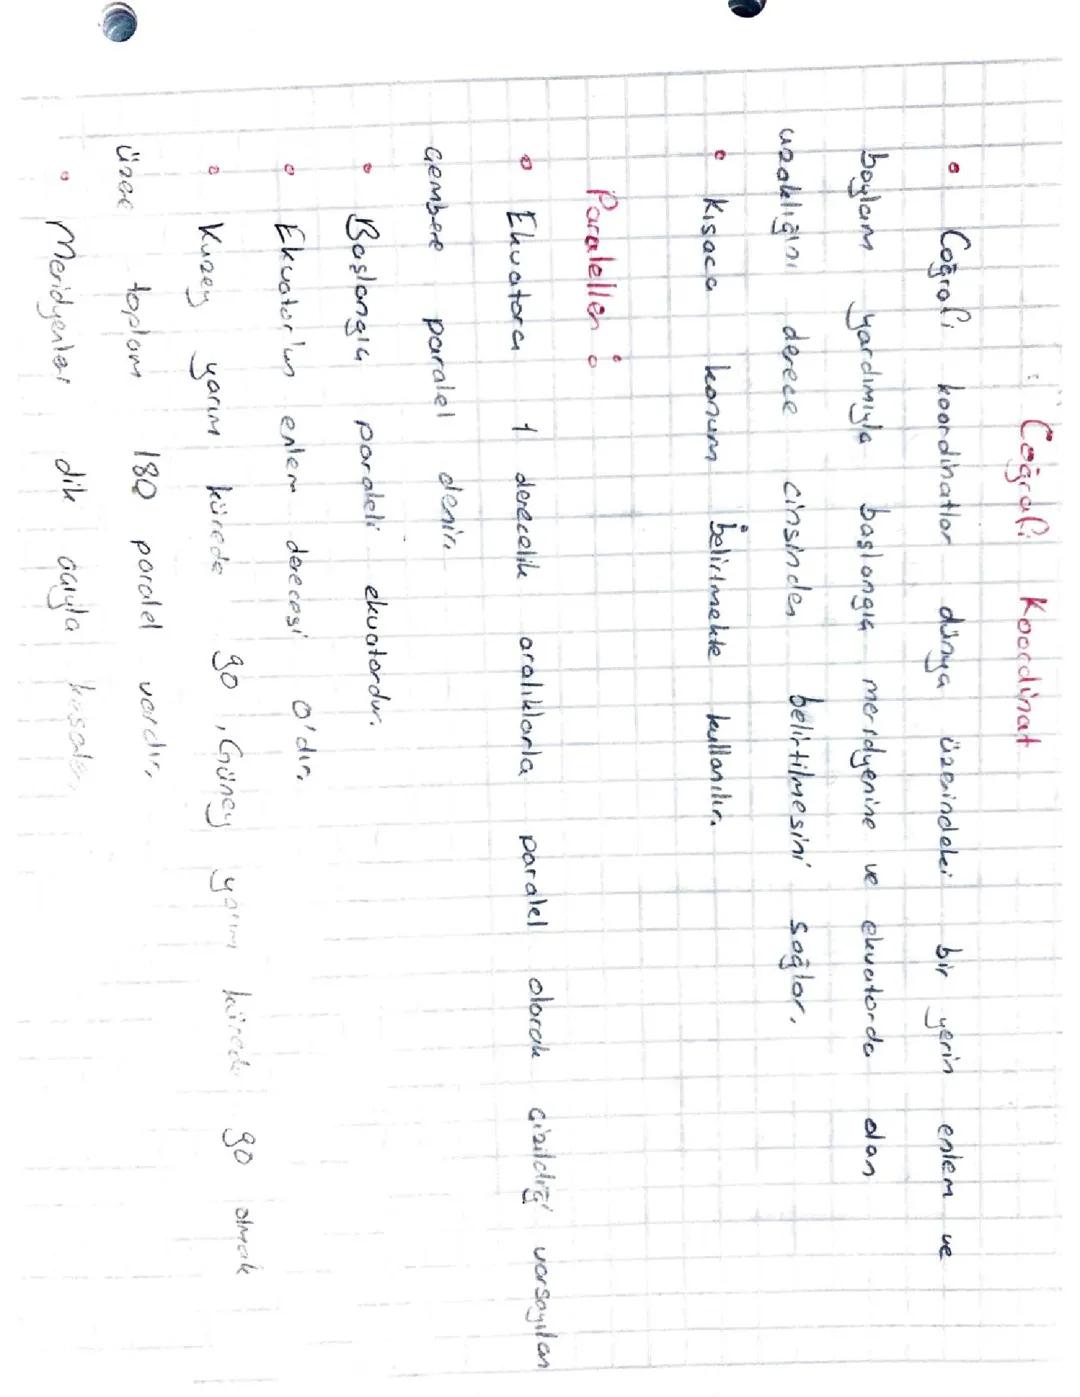 Coğrafi Koordinat
• Coğrafi koordinatlar dünya üzerindeki bir yerin enlem ve
boylam yardımıyla başlangıç meridyenine ve ekvatorda olan
uzaklığını derece cinsinden belirtilmesini sağlar.
• Kısaca konum belirtmekte kullanılır.
Paraleller:
• Ekvatora 1 derecelik aralıklarla paralel olarak çizildiği varsayılan
çembere paralel denir.
• Başlangıç paraleli ekvatordur.
• Ekvator'un enlem derecesi 0'dır.
• Kuzey yarım kürede 90, Güney yarım kürede 90 olmak
üzere toplam 180 paralel vardır.
• Meridyenler dik açıyla keserler